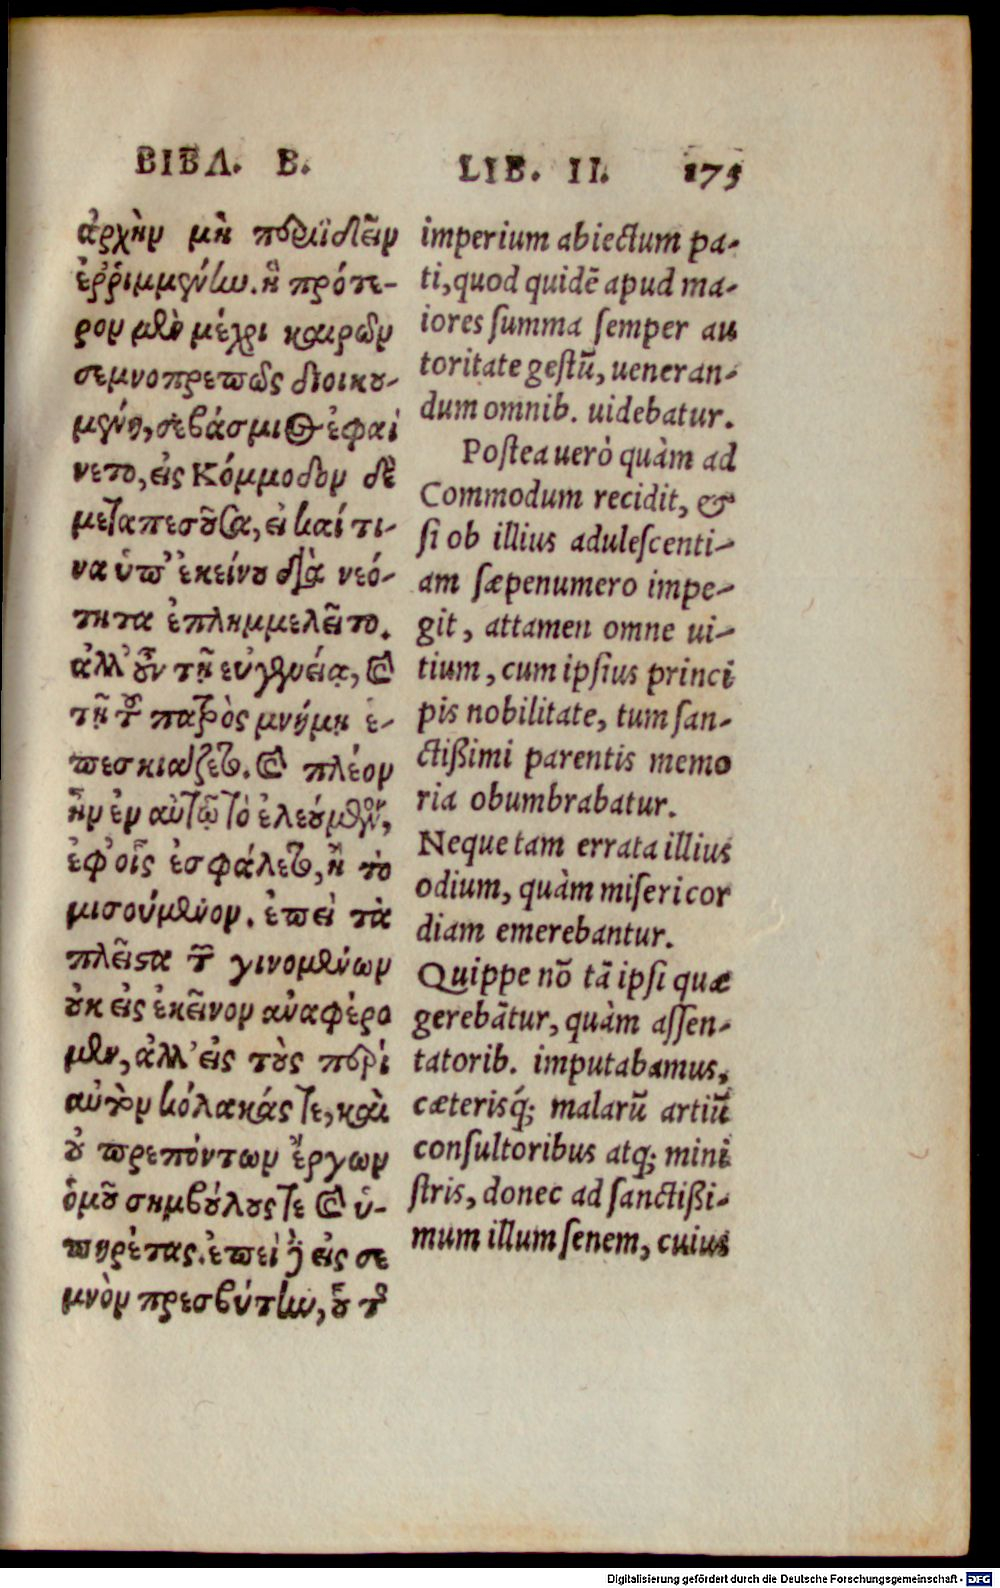 ΒΙΒΛ. Β.
ἀρχὴν μὴ περιϊδεῖν
ἐῤῥιμμένην. ἣ πρότε-
ρον μὲν μέχρι καιρῶν
σεμνοπρεπῶς διοικου-
μένη, σεβάσμιος ἐφαί
νετο, εἰς Κόμμοδον δὲ
μεταπεσοῦσα, εἰ καί τι-
να ὑπ' ἐκείνου διὰ νεό-
τητα ἐπλημμελεῖτο.
ἀλλ' οὖν τῇ εὐγενείᾳ, καὶ
τῇ τοῦ πατρὸς μνήμῃ ἐ-
πεσκιάζετο. καὶ πλέον
ἦν ἐν αὐτῷ τὸ ἐλεούμενον,
ἐφ' οἷς ἐσφάλετο, ἢ τὸ
μισούμενον. ἐπεὶ τὰ
πλεῖστα τῶν γινομένων
οὐκ εἰς ἐκεῖνον ἀναφέρο
μεν, ἀλλ' εἰς τοὺς περὶ
αὐτὸν κόλακάς τε, καὶ
οὐ πρεπόντων ἔργων
ὁμοῦ συμβούλους τε καὶ ὑ-
πηρέτας. ἐπεὶ δὲ εἰς σε
μνὸν πρεσβύτην, οὗ τῆς
LIB. II. 175
imperium abiectum pa-
ti, quod quidē apud ma-
iores summa semper au
toritate gestū, ueneran-
dum omnib. uidebatur.
Postea uerò quàm ad
Commodum recidit, &
si ob illius adulescenti-
am sæpenumero impe-
git, attamen omne ui-
tium, cum ipsius princi
pis nobilitate, tum san-
ctißimi parentis memo
ria obumbrabatur.
Neque tam errata illius
odium, quàm misericor
diam emerebantur.
Quippe nō tā ipsi quæ
gerebātur, quàm assen-
tatorib. imputabamus,
cæterisq́; malarū artiū
consultoribus atq; mini
stris, donec ad sanctißi-
mum illum senem, cuius
Digitalisierung gefördert durch die Deutsche Forschungsgemeinschaft - DFG